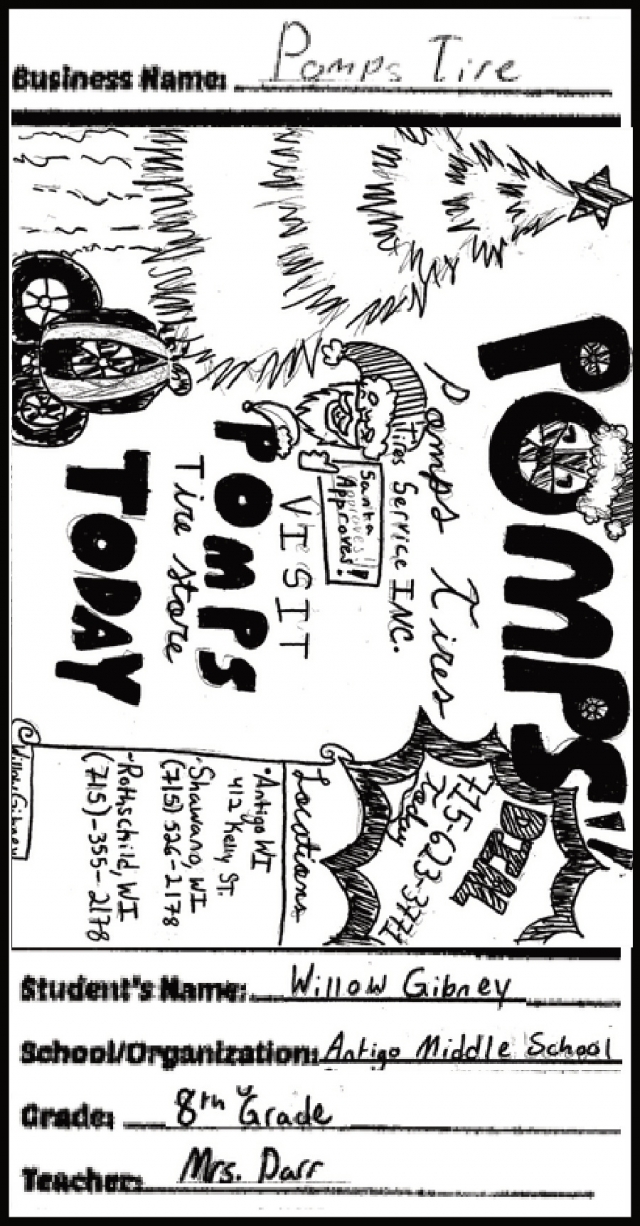 Business Name: Pomps Tire
POMPS!!
Pomps Tires
Tires Service INC.
Santa
Approves!!
Approves!
VISIT
POMPS
Tire store
TODAY
DIAL
715-623-3771
Today
Locations
•Antigo WI
412 Kelly St.
-Shawano, WI
(715) 526-2178
-Rothschild, WI
(715)-355-2178
©Willow Gibney
Student's Name: Willow Gibney
School/Organization: Antigo Middle School
Grade: 8th Grade
Teacher: Mrs. Darr